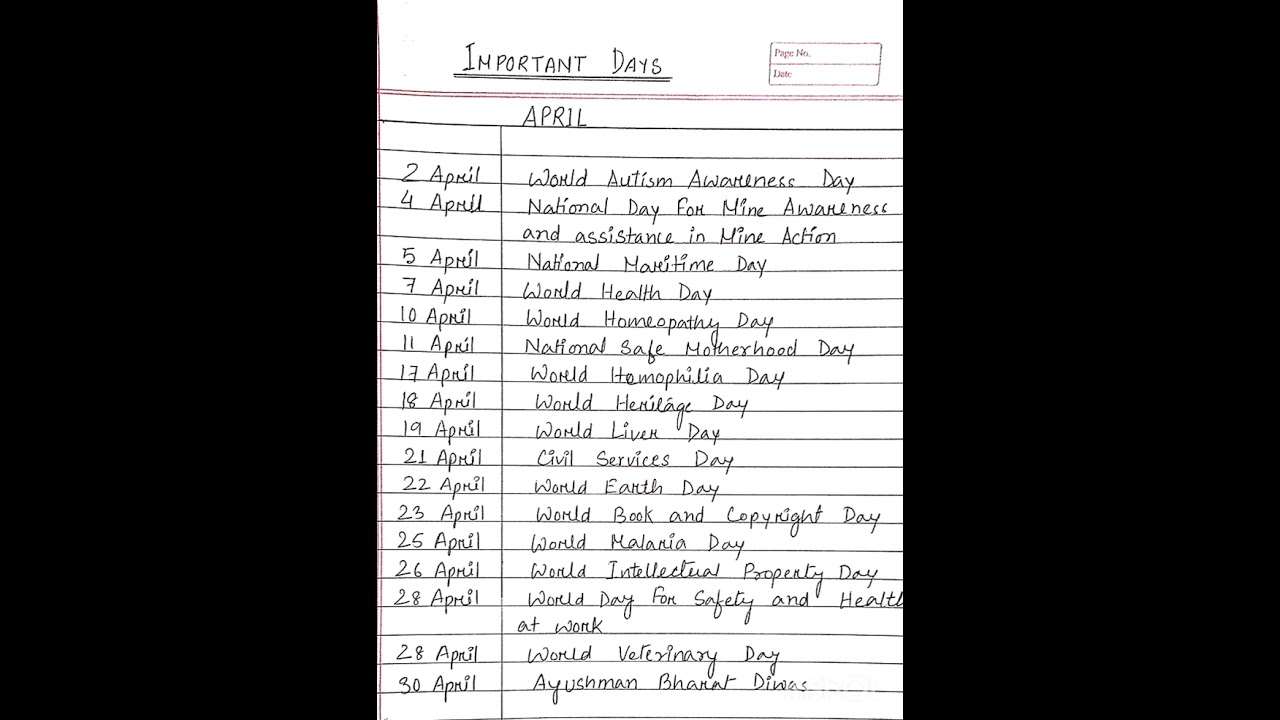 IMPORTANT DAYS
Page No.
Date
APRIL
2 April World Autism Awareness Day
4 April National Day For Mine Awareness
and assistance in Mine Action
5 April National Maritime Day
7 April World Health Day
10 April World Homeopathy Day
11 April National Safe Motherhood Day
17 April World Hemophilia Day
18 April World Heritage Day
19 April World Liver Day
21 April Civil Services Day
22 April World Earth Day
23 April World Book and Copyright Day
25 April World Malaria Day
26 April World Intellectual Property Day
28 April World Day For Safety and Health
at work
28 April World Veterinary Day
30 April Ayushman Bharat Diwas